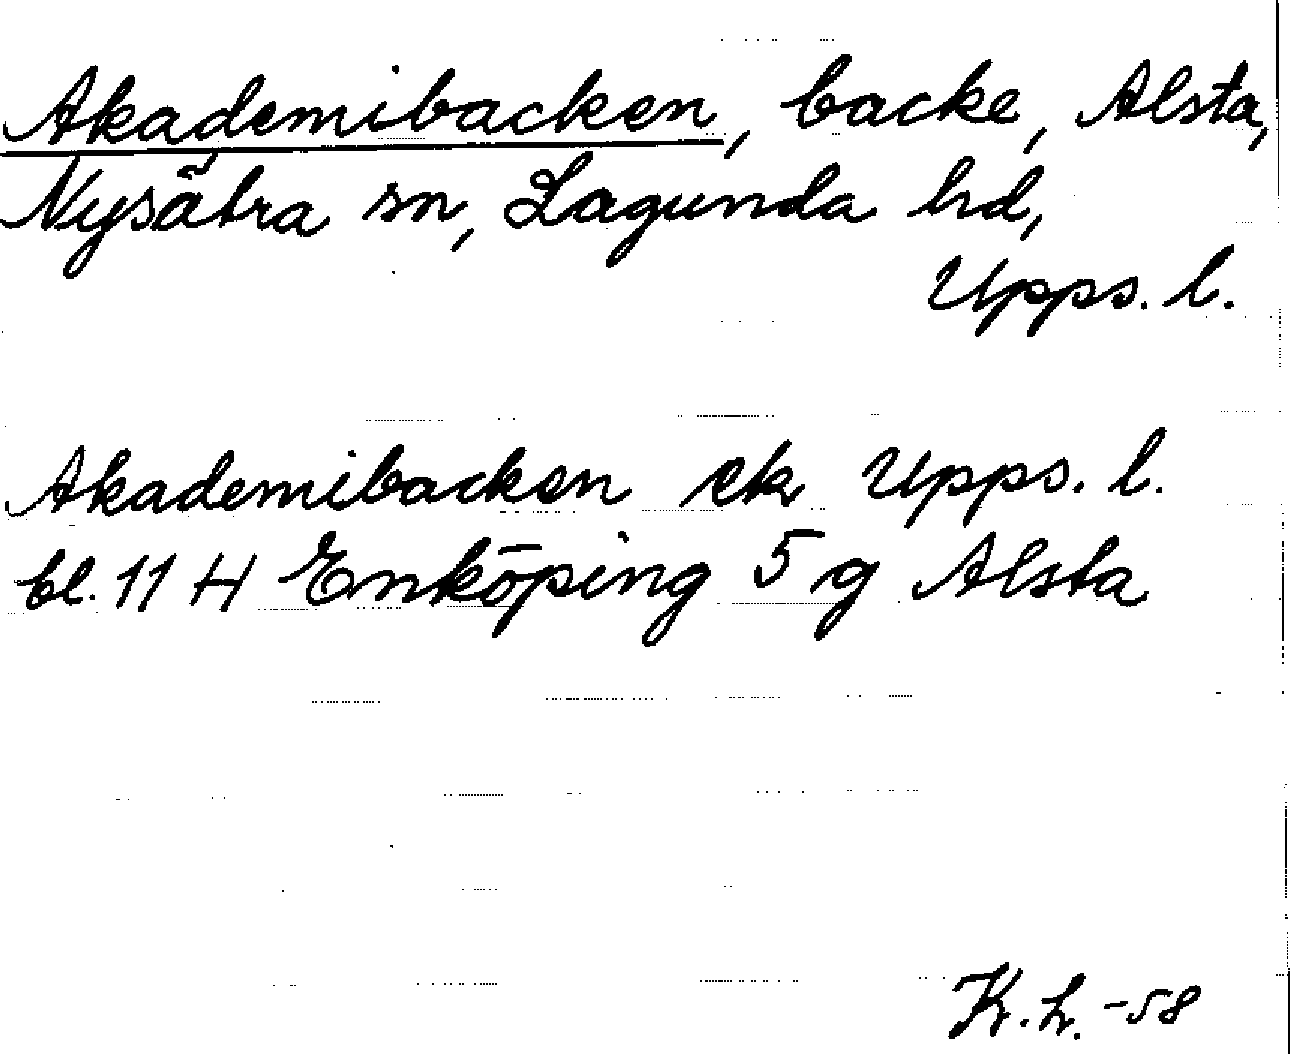 Akademibacken, backe, Alsta,
Nysätra sn, Lagunda hd,
Upps. l.
Akademibacken ek Upps. l.
bl. 11 H Enköping 5 g Alsta
K.L. -58